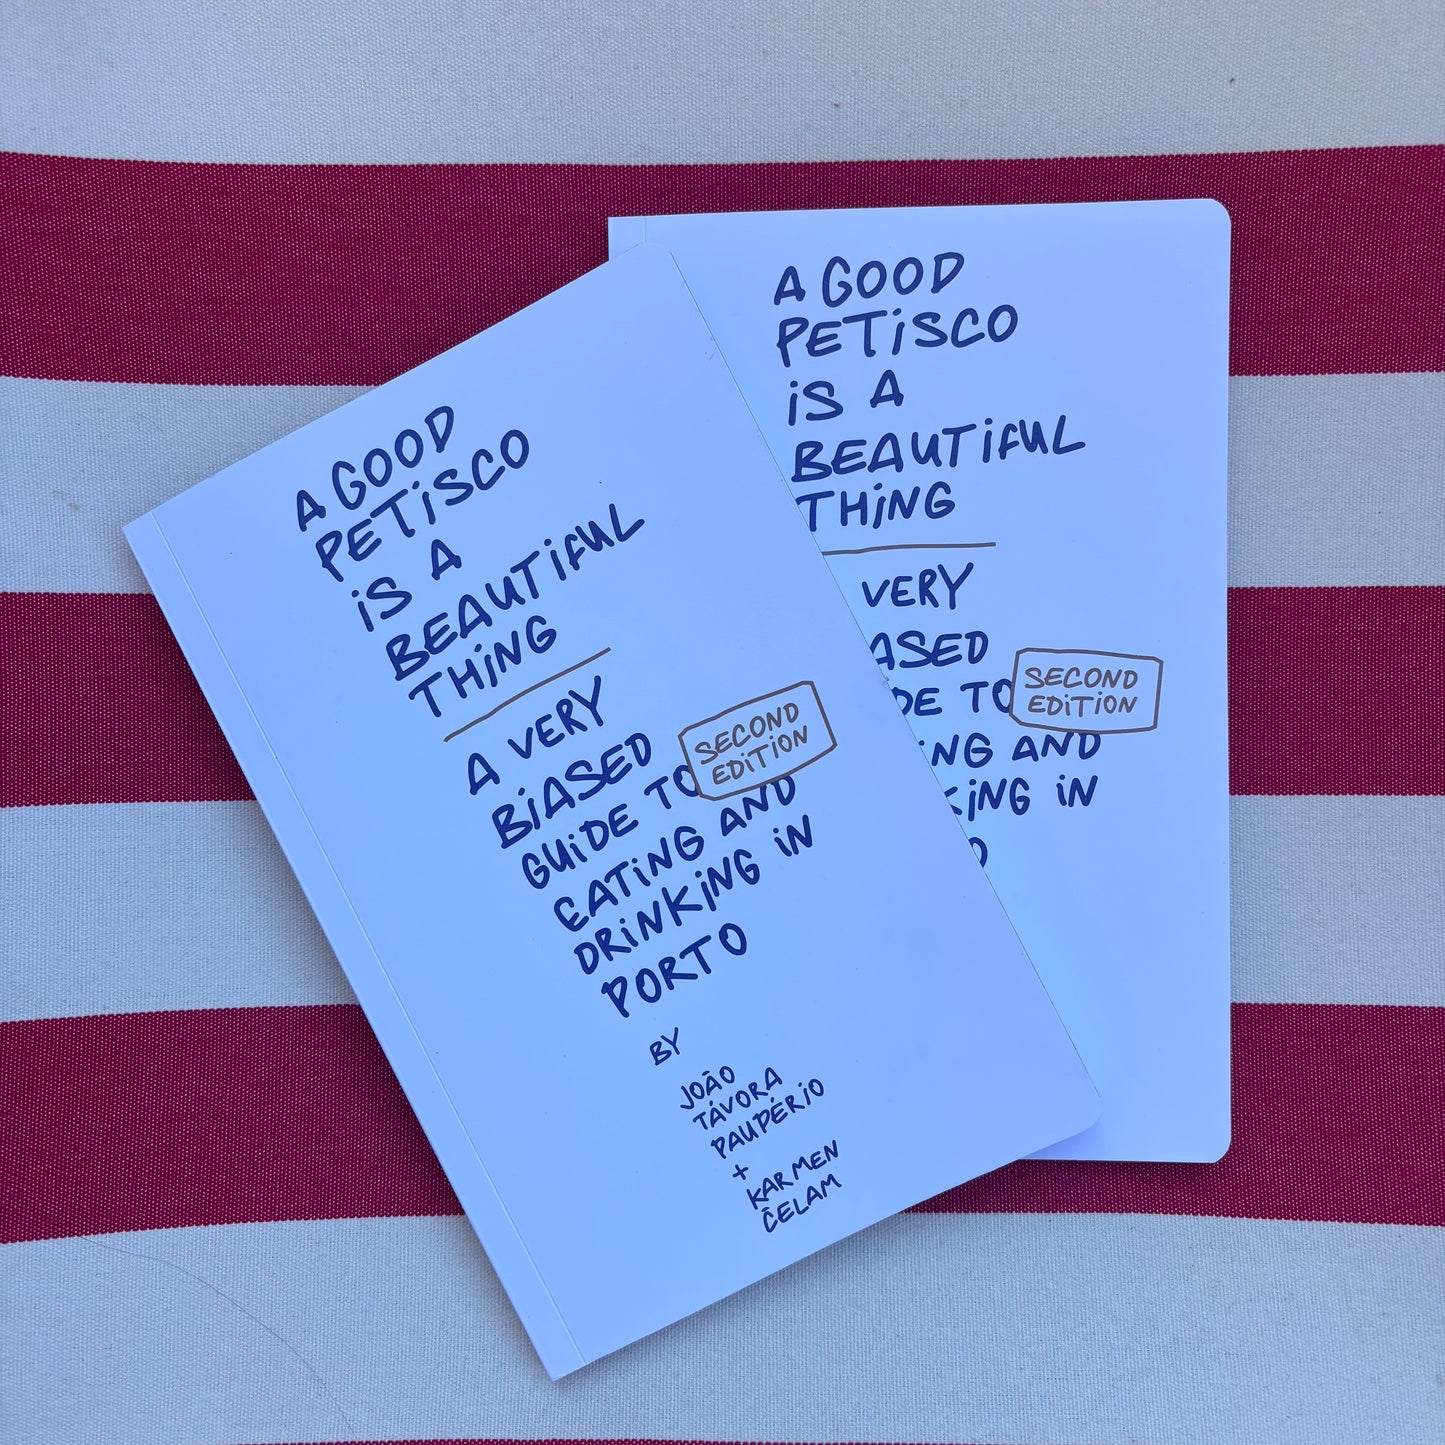 A GOOD
PETISCO
IS A
BEAUTIFUL
THING
A VERY
BIASED
GUIDE TO
EATING AND
DRINKING IN
PORTO
SECOND
EDITION
BY
JOÃO
TÁVORA
PAUPÉRIO
+
KARMEN
ČELAM
A GOOD
PETISCO
IS A
BEAUTIFUL
THING
VERY
ASED
DE TO
NG AND
KING IN
O
SECOND
EDITION